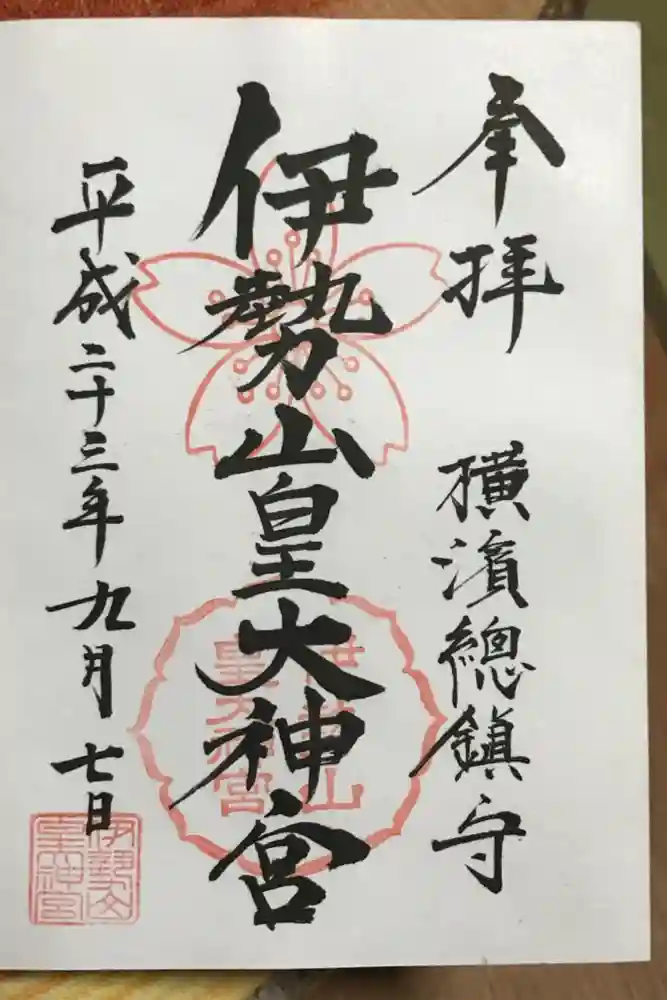 奉拝
横濱總鎮守
伊勢山皇大神宮
平成二十三年九月七日
伊勢山
皇大神宮
伊勢山
皇神宮